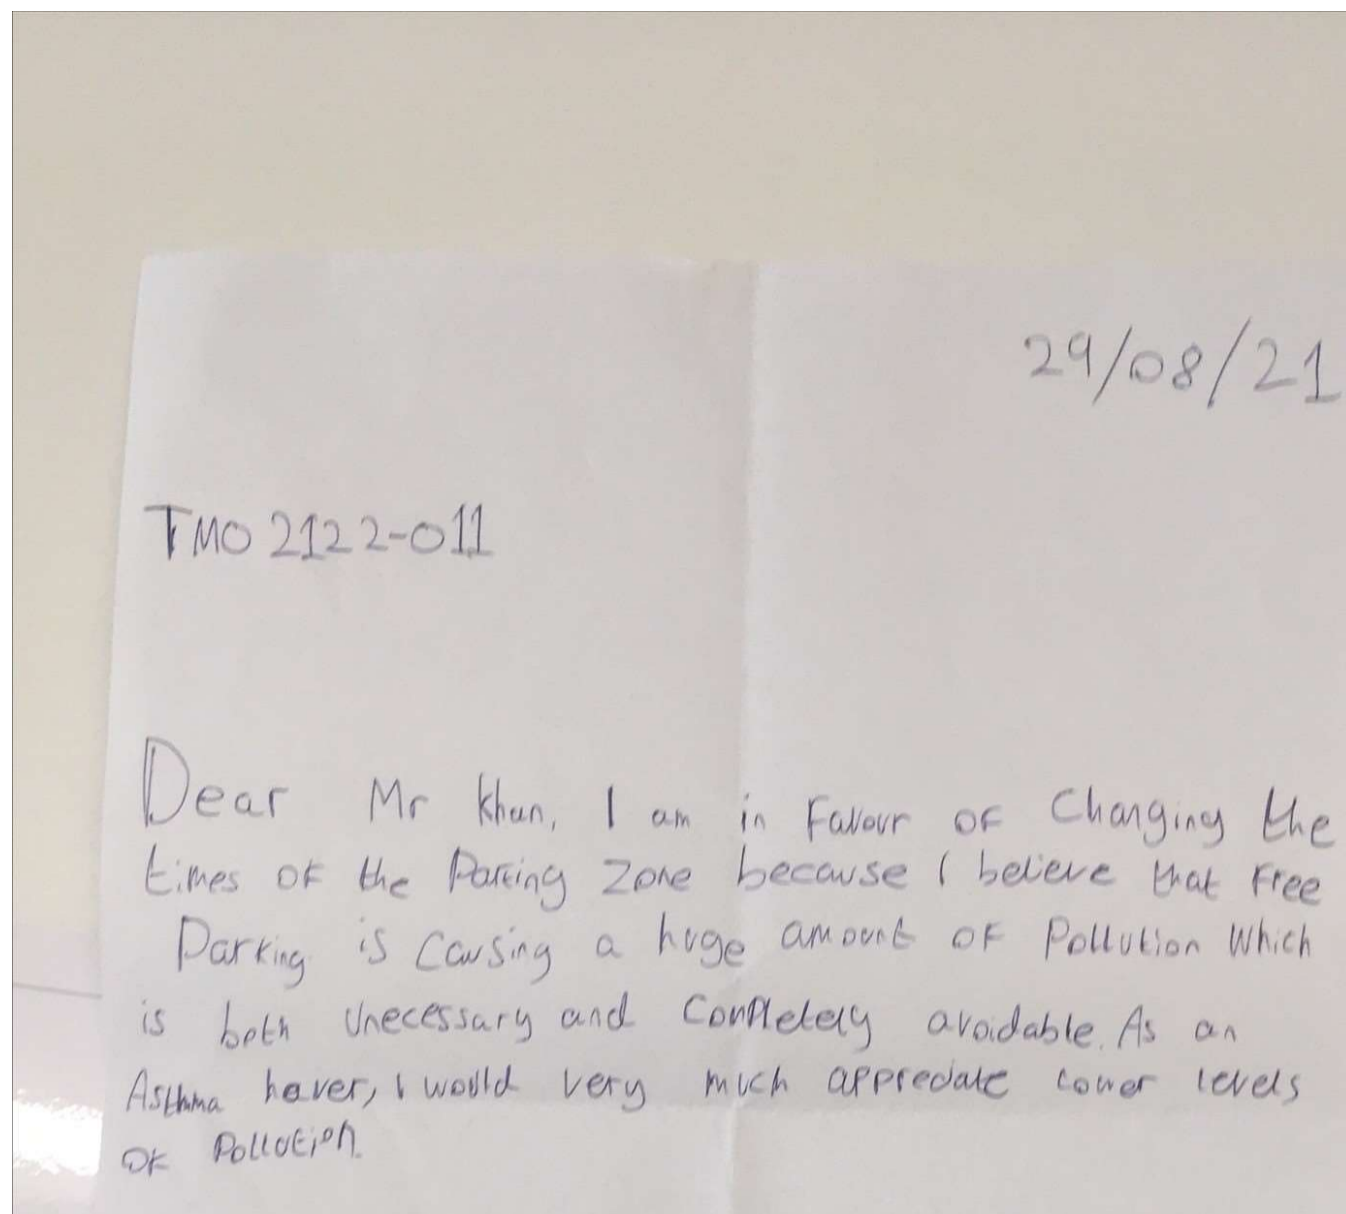 29/08/21
TMO 2122-011
Dear Mr Khan, I am in Favour OF Changing the
times OF the Parking Zone because I believe that Free
Parking is Causing a huge amount OF Pollution Which
is both Unecessary and Completely avoidable. As an
Asthma haver, I would very much appreciate lower levels
OF Pollution.